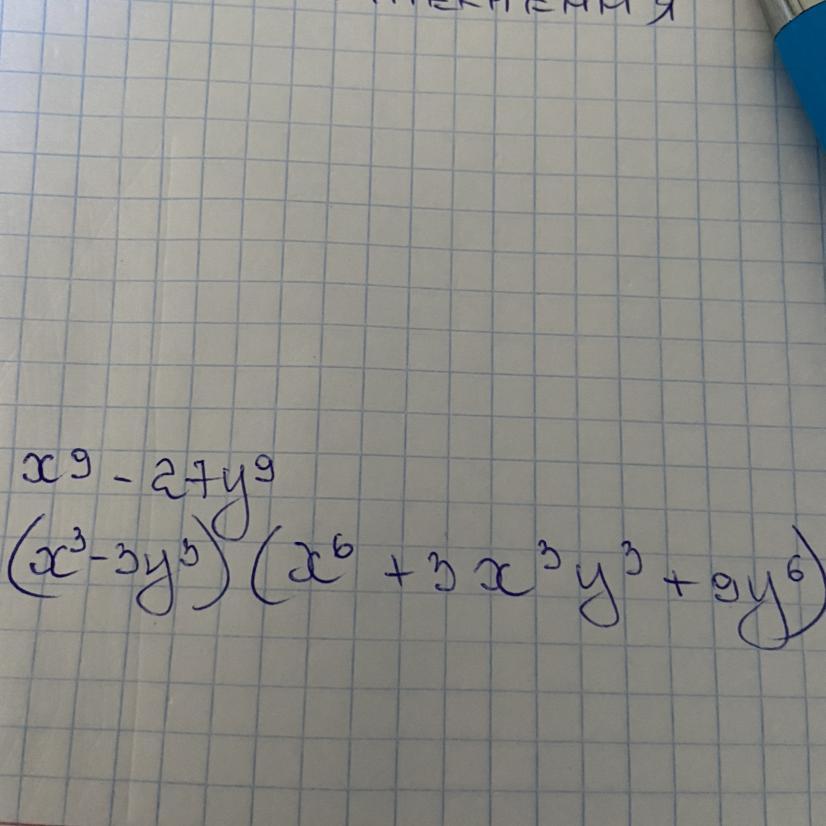 x⁹ - 27y⁹
(x³-3y³) (x⁶ + 3x³y³ + 9y⁶)